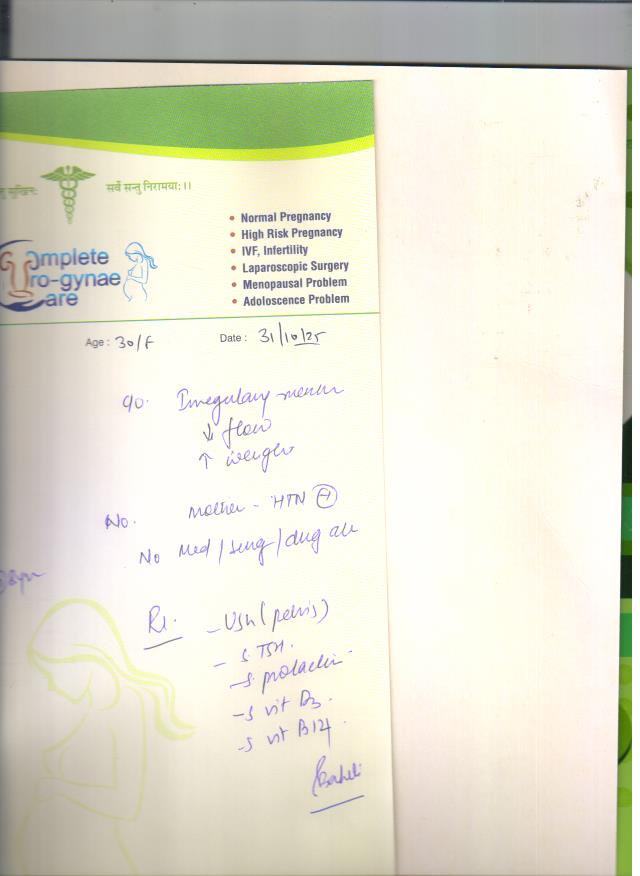 सर्वे सन्तु निरामयाः।।
• Normal Pregnancy
• High Risk Pregnancy
• IVF, Infertility
• Laparoscopic Surgery
• Menopausal Problem
• Adoloscence Problem
Complete
Uro-gynae
Care
Age : 30/F Date : 31/10/25
c/o. Irregular menses
↓ flow
↑ weight
mother - HTN (+)
No Med / surg / drug all
- USG (pelvis)
- S. TSH.
- S. prolactin
- S vit D3.
- S vit B12.